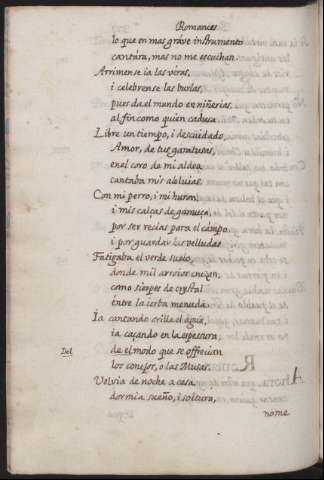 Romances
lo que en mas gráve instrumento
cantára, mas no me escuchan.
Arrimense ia las véras,
i celebrense las burlas,
pues da el mundo en niñerias,
al fin como quien caduca.
Libre un tiempo, i descuidado,
Amor, de tus garatusas,
en el coro de mi aldea
cantaba mis aleluias.
Con mi perro, i mi huron,
i mis calças de gamuça,
por ser recias para el campo
i por guardar las velludas
Fatigaba el verde suelo,
donde mil arroios cruzan,
como sierpes de crystal
Entre la ierba menuda.
Ia cantando orilla el agua,
ia caçando en la espessura,
Del
de el modo que se offrecian
los conejos, o las Musas.
Volvia de noche a casa,
dormia sueño, i soltura,
nome